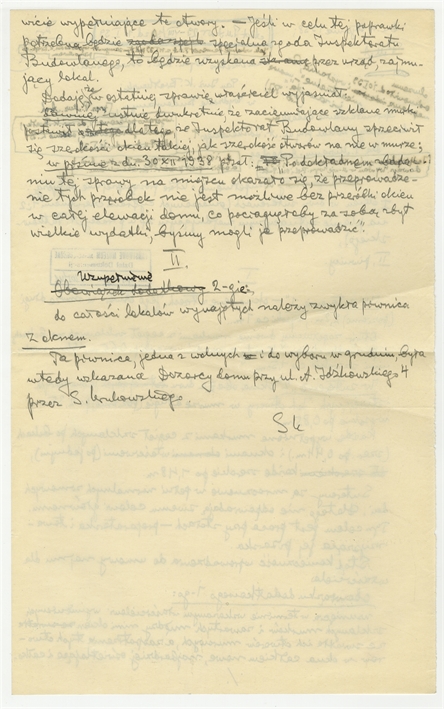 wicie wypełniające te otwory. — Jeśli w celu tej poprawki
potrzebna będzie specjalna zgoda Inspektoratu
Budowlanego, to będzie wzyskana przez urząd zajmu-
jący lokal.
Dodaję, że w ostatniej sprawie właściciel wyjaśniał
ustnie dwukrotnie, że zacieśniające szklane murki
postawił dlatego że Inspektorat Budowlany sprzeciwił
się szerokości okien takiej, jak szerokość otworów na nie w murze;
w piśmie z dn. 30 XII 1938 pisał, "Po dokładnem zbada-
niu tej sprawy na miejscu okazało się, że przeprowadze-
nie tych przeróbek nie jest możliwe bez przeróbki okien
w całej elewacji domu, co pociągnęłoby za sobą zbyt
wielkie wydatki, byśmy mogli je przeprowadzić".
II.
Wzupełnienie
Obowiązek dodatkowy 2-gie:
do całości lokalów wynajętych należy zwykła piwnica
z oknem.
Ta piwnica, jedna z wolnych i do wyboru w grudniu była
wtedy wskazana Dozorcy domu przy ul. A. Idźkowskiego 4
przez S.
Sk